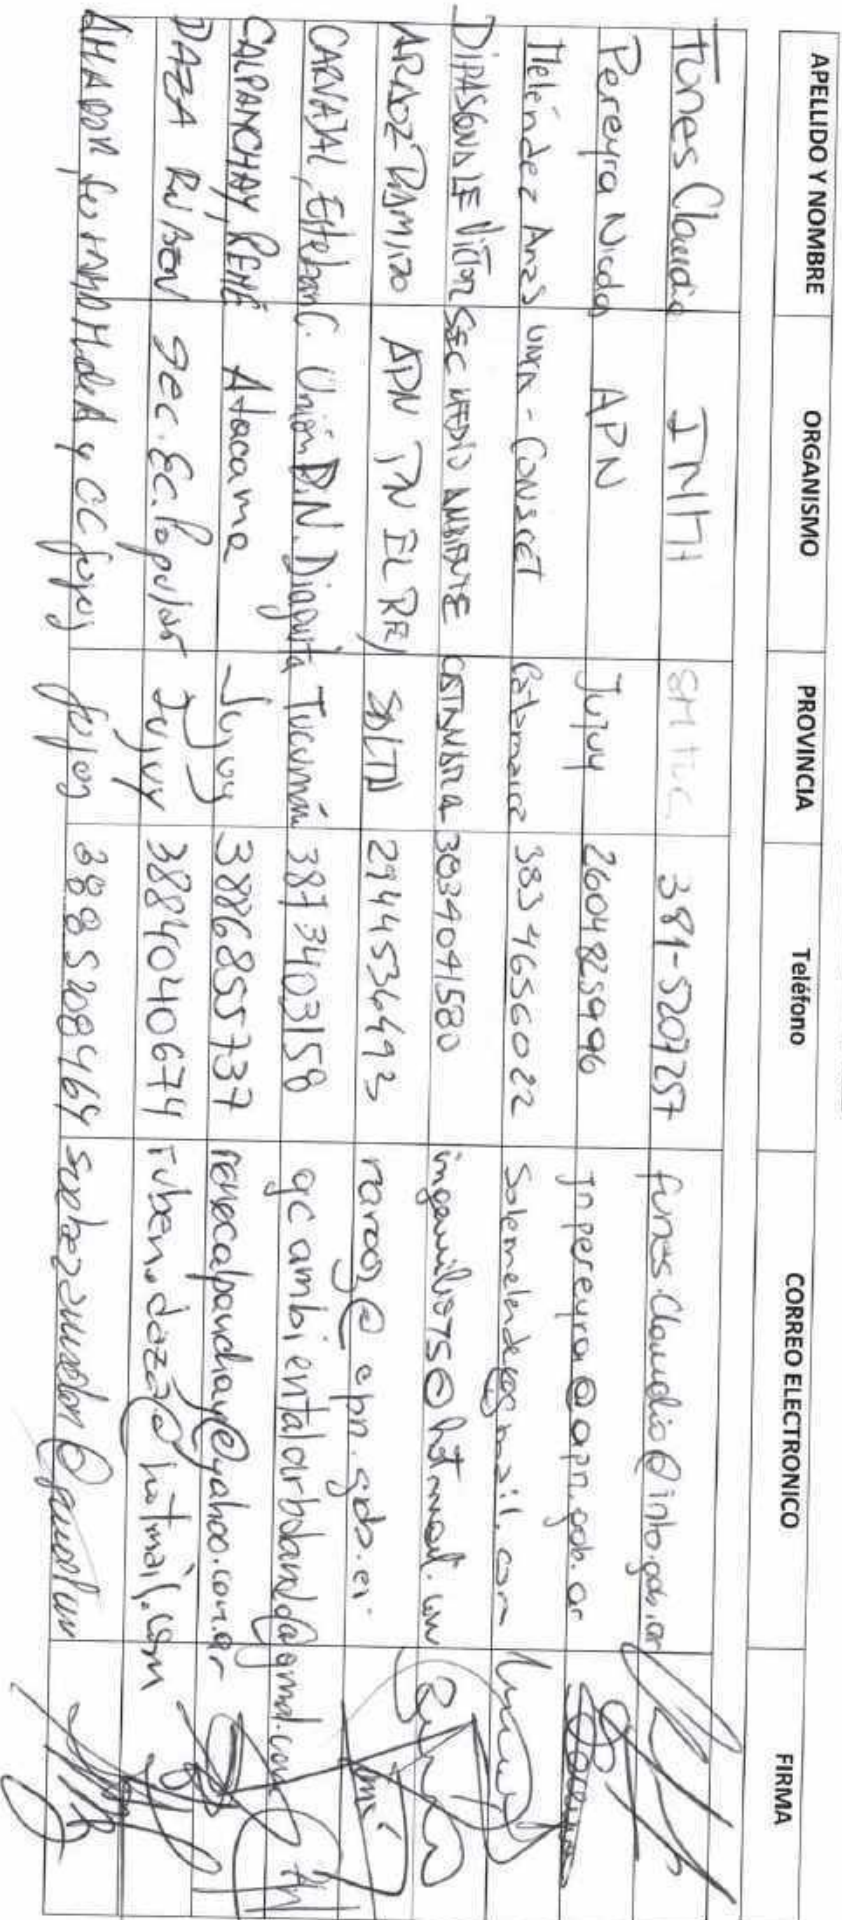 APELLIDO Y NOMBRE ORGANISMO PROVINCIA Teléfono CORREO ELECTRONICO FIRMA
Funes Claudio 381-5209257 funes.claudio@inta.gob.ar
Pereyra Nicolas APN Jujuy 2604825996 jnpereyra@apn.gob.ar
Meléndez Anas Catamarca 3834656022
DIPASQUALE VICTOR SEC MEDIO AMBIENTE CATAMARCA 3834041580
ARAOZ RAMIRO APN PN EL REY SALTA 2944536493
CARVAJAL, Esteban C. Unión P.N. Diaguita Tucumán 3813403158 gcambientalarboland@gmail.com
CALPANCHAY, RENÉ Atacama Jujuy 3886855737 renecalpanchay@yahoo.com.ar
DAZA RUBEN Sec. Ec. Popular Jujuy 3884040674 ruben.daza@hotmail.com
AMADOR, M de A y CC Jujuy Jujuy 3885208469